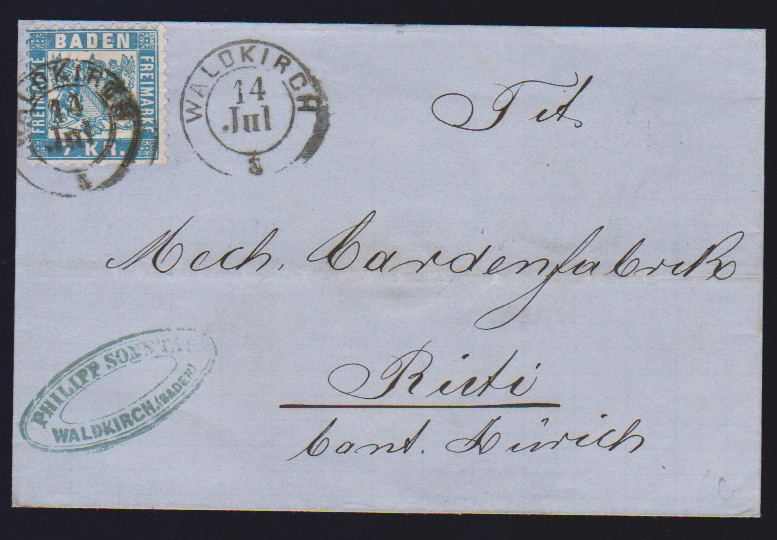 BADEN
FREIMARKE
FREIMARKE
7 KR.
WALDKIRCH
14
Jul
WALDKIRCH
14
Jul
Tit.
Mech. Cardenfabrik
Rüti
Cant. Zürich
PHILIPP SONNTAG
WALDKIRCH.(BADEN)